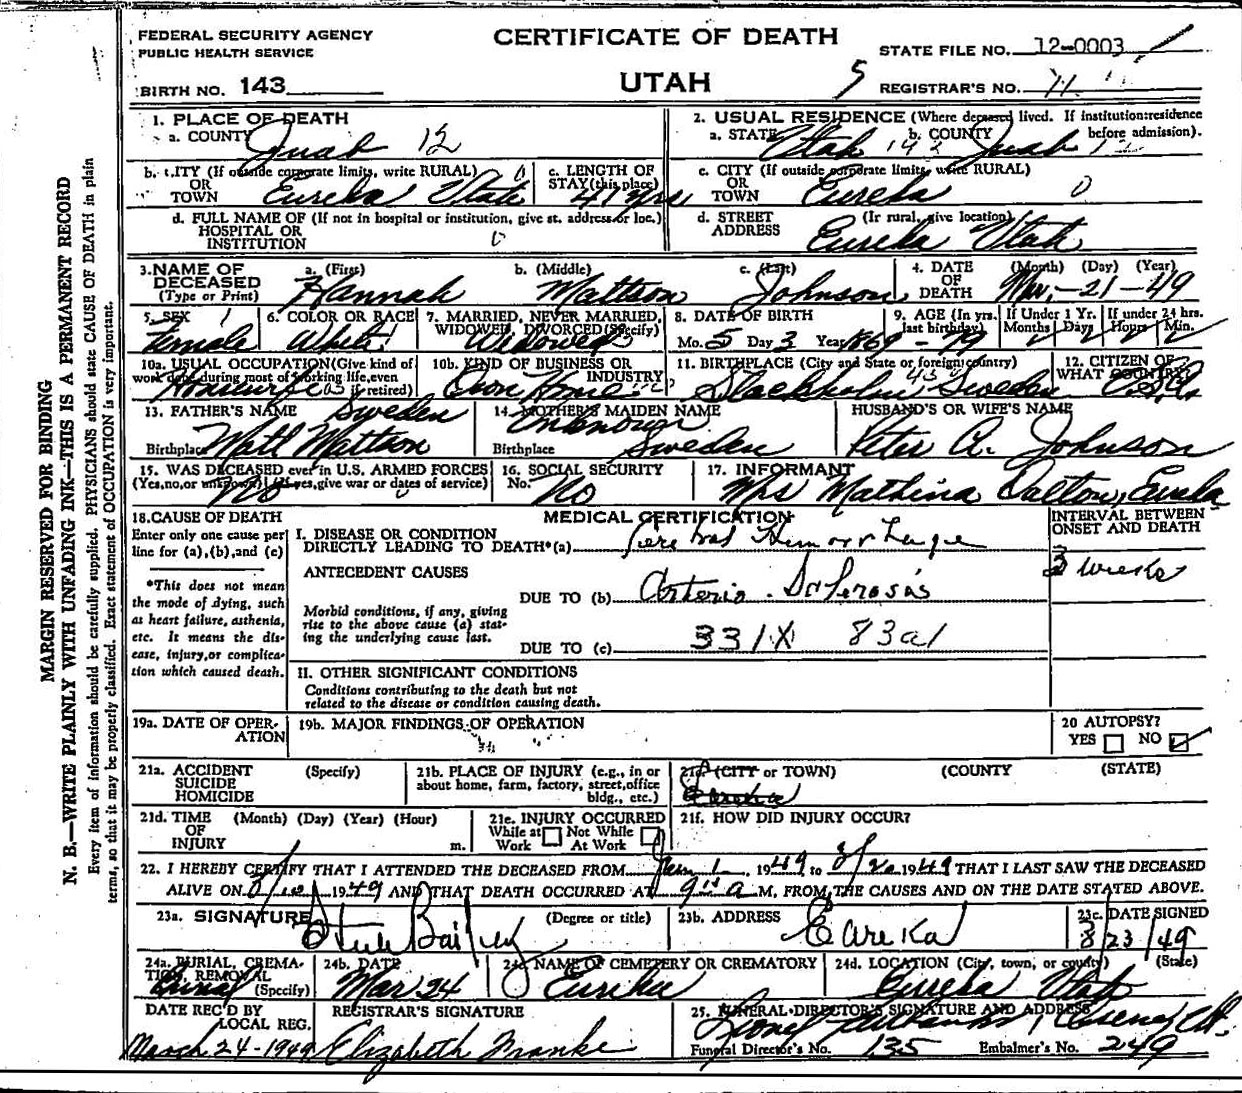 FEDERAL SECURITY AGENCY
PUBLIC HEALTH SERVICE
CERTIFICATE OF DEATH
STATE FILE NO. 12-0003
BIRTH NO. 143
UTAH
5
REGISTRAR'S NO. 11
MARGIN RESERVED FOR BINDING
N. B.—WRITE PLAINLY WITH UNFADING INK—THIS IS A PERMANENT RECORD
Every item of information should be carefully supplied. PHYSICIANS should state CAUSE OF DEATH in plain
terms, so that it may be properly classified. Exact statement of OCCUPATION is very important.
1. PLACE OF DEATH
a. COUNTY Juab 12
2. USUAL RESIDENCE (Where deceased lived. If institution:residence
a. STATE Utah 143 b. COUNTY Juab before admission).
b. CITY (If outside corporate limits, write RURAL)
OR
TOWN Eureka Utah
c. LENGTH OF
STAY (this place)
41 yrs
c. CITY (If outside corporate limits, write RURAL)
OR
TOWN Eureka 0
d. FULL NAME OF (If not in hospital or institution, give st. address or loc.)
HOSPITAL OR
INSTITUTION 0
d. STREET (If rural, give location)
ADDRESS Eureka Utah
3. NAME OF DECEASED
(Type or Print)
a. (First) Hannah
b. (Middle) Mattson
c. (Last) Johnson
4. DATE OF DEATH
(Month) (Day) (Year)
Mar.-21-49
5. SEX
Female
6. COLOR OR RACE
White
7. MARRIED, NEVER MARRIED,
WIDOWED, DIVORCED (Specify)
Widowed
8. DATE OF BIRTH
Mo. 5 Day 3 Year 1869
9. AGE (In yrs.
last birthday)
79
If Under 1 Yr.
Months Days
If under 24 hrs.
Hours Min.
10a. USUAL OCCUPATION (Give kind of
work done during most of working life, even
if retired)
Housewife
10b. KIND OF BUSINESS OR
INDUSTRY
Own Home
11. BIRTHPLACE (City and State or foreign country)
Stockholm Sweden
12. CITIZEN OF
WHAT COUNTRY?
U.S.A.
13. FATHER'S NAME
Sweden
Birthplace Matt Mattson
14. MOTHER'S MAIDEN NAME
Unknown
Birthplace Sweden
HUSBAND'S OR WIFE'S NAME
Peter A. Johnson
15. WAS DECEASED ever in U.S. ARMED FORCES
(Yes, no, or unknown) (If yes, give war or dates of service)
No
16. SOCIAL SECURITY
No. No
17. INFORMANT
Mrs Mathina Dalton, Eureka
18. CAUSE OF DEATH
Enter only one cause per
line for (a), (b), and (c)
*This does not mean
the mode of dying, such
as heart failure, asthenia,
etc. It means the dis-
ease, injury, or complica-
tion which caused death.
MEDICAL CERTIFICATION
I. DISEASE OR CONDITION
DIRECTLY LEADING TO DEATH*(a) Cerebral Hemorrhage
INTERVAL BETWEEN
ONSET AND DEATH
3 weeks
ANTECEDENT CAUSES
DUE TO (b) Arterio-Sclerosis
Morbid conditions, if any, giving
rise to the above cause (a) stat-
ing the underlying cause last.
DUE TO (c) 331X 83a1
II. OTHER SIGNIFICANT CONDITIONS
Conditions contributing to the death but not
related to the disease or condition causing death.
19a. DATE OF OPER-
ATION
19b. MAJOR FINDINGS OF OPERATION
20 AUTOPSY?
YES NO ✓
21a. ACCIDENT (Specify)
SUICIDE
HOMICIDE
21b. PLACE OF INJURY (e.g., in or
about home, farm, factory, street, office
bldg., etc.)
21c. (CITY or TOWN) (COUNTY) (STATE)
Eureka
21d. TIME (Month) (Day) (Year) (Hour)
OF
INJURY m.
21e. INJURY OCCURRED
While at Work Not While At Work
21f. HOW DID INJURY OCCUR?
22. I HEREBY CERTIFY THAT I ATTENDED THE DECEASED FROM Jan 1, 1949 to 3/20 1949 THAT I LAST SAW THE DECEASED
ALIVE ON 1949 AND THAT DEATH OCCURRED AT A M, FROM THE CAUSES AND ON THE DATE STATED ABOVE.
23a. SIGNATURE (Degree or title)
Steele Bailey
23b. ADDRESS
Eureka
23c. DATE SIGNED
3/23/49
24a. BURIAL, CREMA-
TION, REMOVAL
(Specify)
Burial
24b. DATE
Mar 24
24c. NAME OF CEMETERY OR CREMATORY
Eureka
24d. LOCATION (City, town, or county) (State)
Eureka Utah
DATE REC'D BY
LOCAL REG.
March 24-1949
REGISTRAR'S SIGNATURE
Elizabeth Franke
25. FUNERAL DIRECTOR'S SIGNATURE AND ADDRESS
Funeral Director's No. 135 Embalmer's No. 249